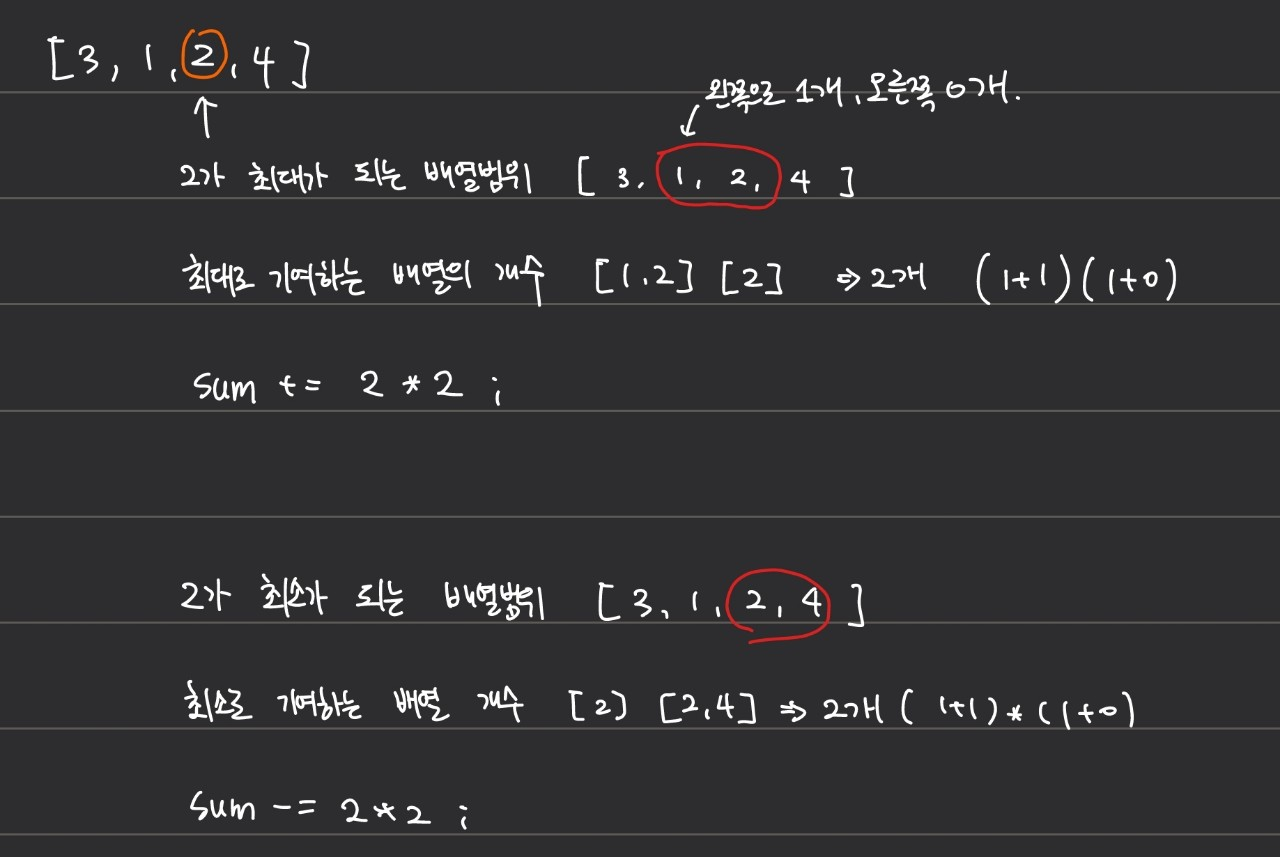 [3, 1, 2, 4]
왼쪽으로 1개, 오른쪽 0개.
2가 최대가 되는 배열범위 [ 3, 1, 2, 4 ]
최대로 기여하는 배열의 개수 [1,2] [2] ⇒ 2개 (1+1)(1+0)
sum += 2 * 2 ;
2가 최소가 되는 배열범위 [ 3, 1, 2, 4 ]
최소로 기여하는 배열 개수 [2] [2,4] ⇒ 2개 ( 1+1) * (1+0)
sum -= 2*2 ;